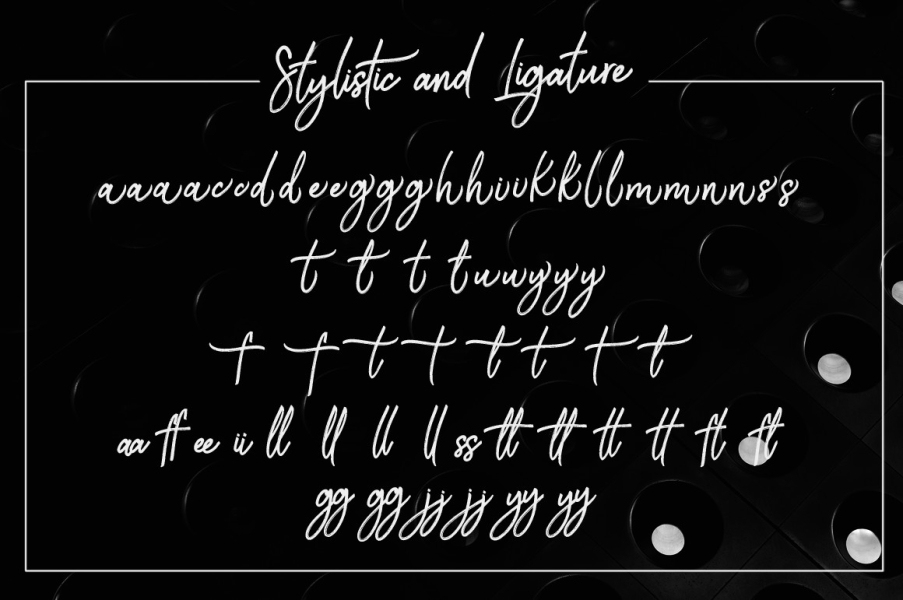 Stylistic and Ligature
aaaaccddeeggghhiiikkllmmnnss
t t t tuuuyyy
f f t t t t t t
aa ff ee ii ll ll ll ll ss tt tt tt tt ft ft
gg gg jj jj yy yy